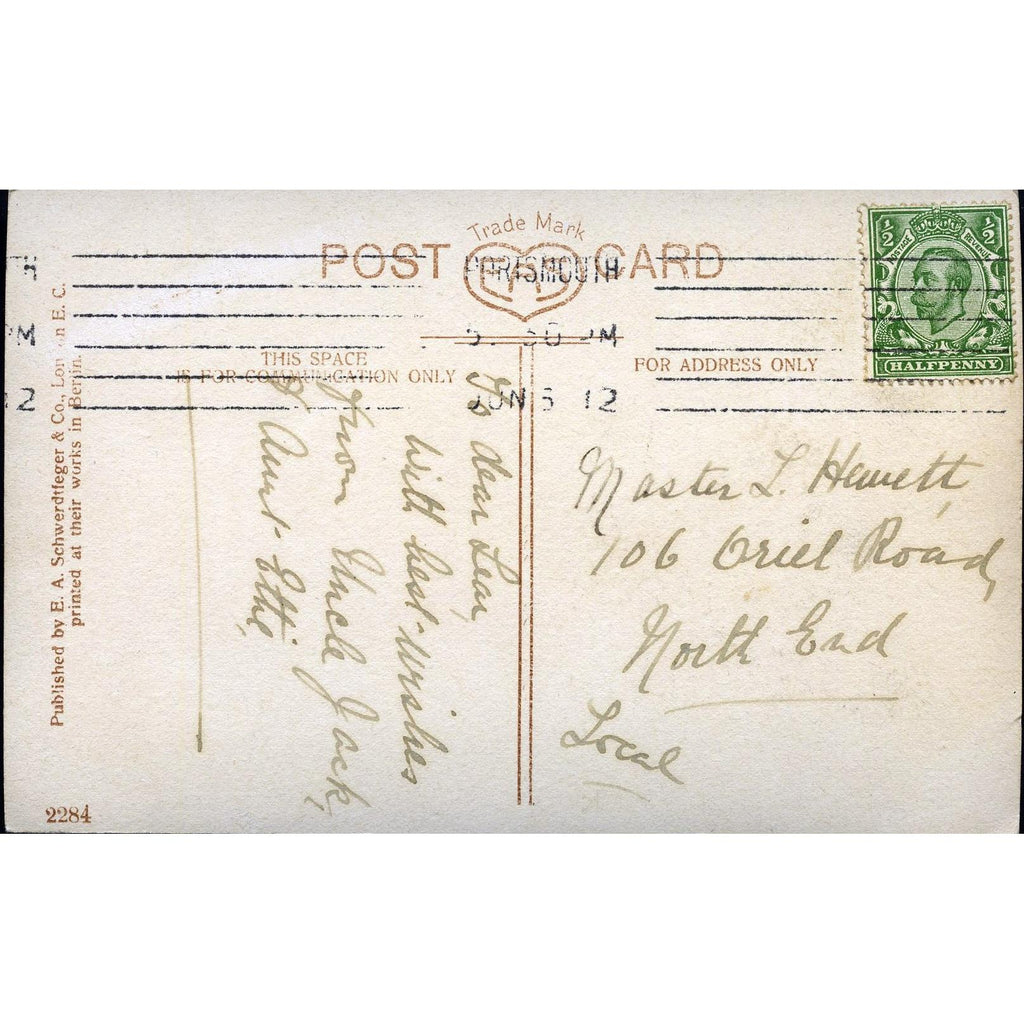 Trade Mark
POST CARD
EAS
PORTSMOUTH
5. 30 PM
JUN 5 12
H
PM
12
½ ½
POSTAGE REVENUE
HALFPENNY
THIS SPACE
IS FOR COMMUNICATION ONLY
FOR ADDRESS ONLY
To dear Len,
With best wishes
from Uncle Jack,
& Aunt Ettie,
Master L. Hewett,
106 Oriel Road,
North End
Local
Published by E. A. Schwerdtfeger & Co., London E. C.
printed at their works in Berlin.
2284